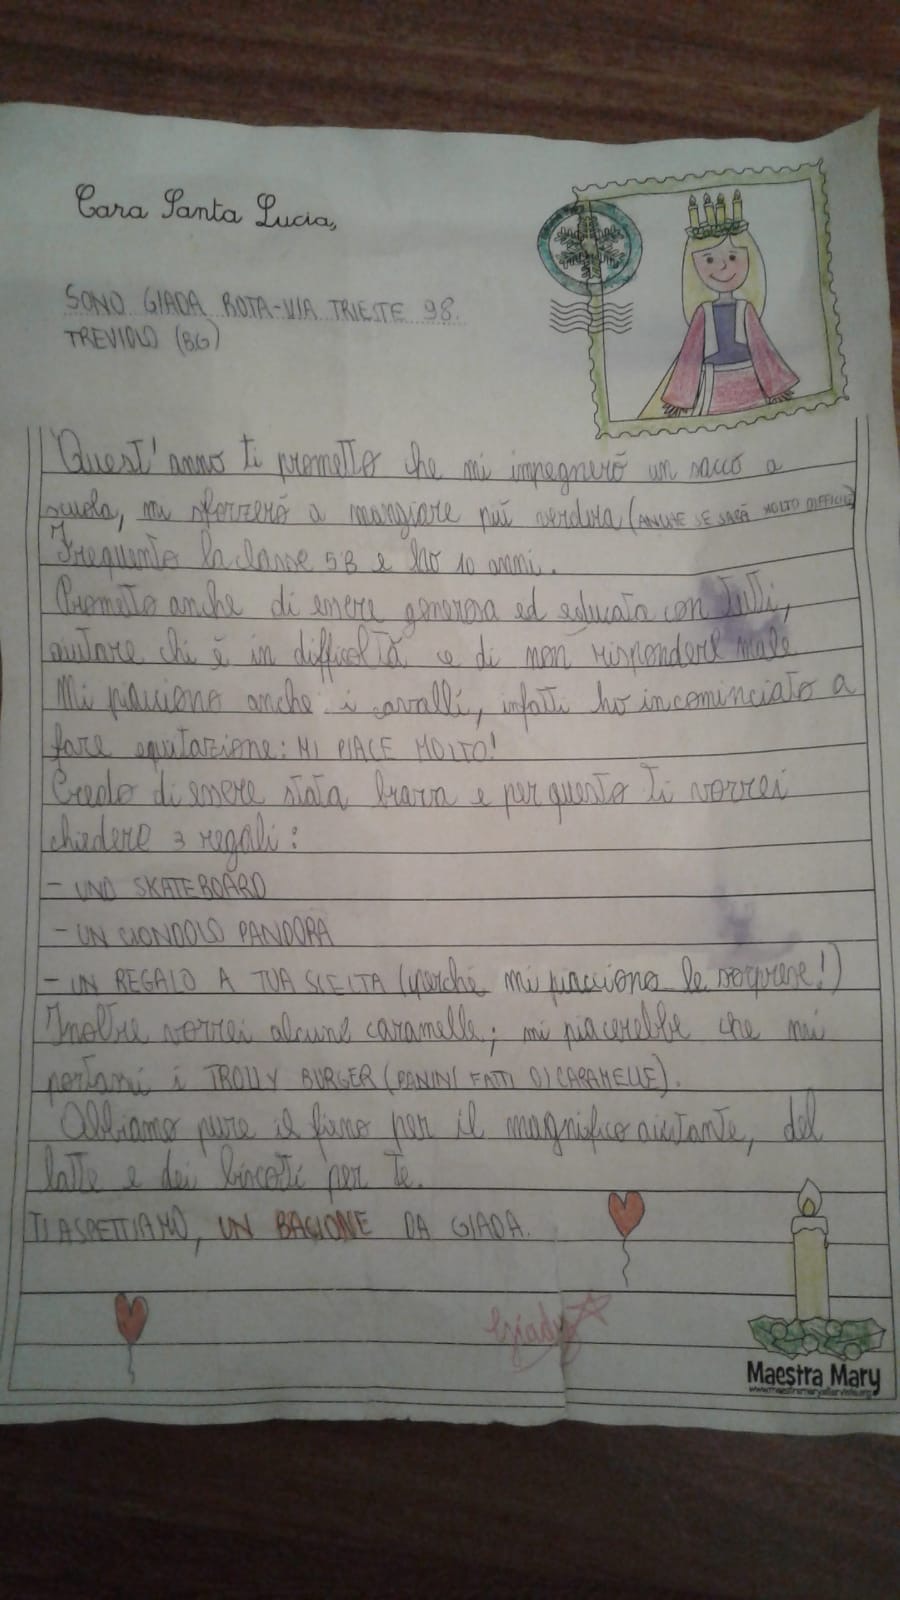 Cara Santa Lucia,
SONO GIADA ROTA-VIA TRIESTE 98.
TREVIOLO (BG)
Quest'anno ti prometto che mi impegnerò un sacco a
scuola, mi sforzerò a mangiare più verdura (ANCHE SE SARÀ MOLTO DIFFICILE)
Frequento la classe 5B e ho 10 anni.
Prometto anche di essere generosa ed educata con tutti,
aiutare chi è in difficoltà e di non rispondere male
Mi piacciono anche i cavalli, infatti ho incominciato a
fare equitazione: MI PIACE MOLTO!
Credo di essere stata brava e per questo ti vorrei
chiedere 3 regali:
- UNO SKATEBOARD
- UN CIONDOLO PANDORA
- UN REGALO A TUA SCELTA (perché mi piacciono le sorprese!)
Inoltre vorrei alcune caramelle; mi piacerebbe che mi
portassi i TROLLY BURGER (PANINI FATTI DI CARAMELLE).
Abbiamo pure il fieno per il magnifico aiutante, del
latte e dei biscotti per te.
TI ASPETTIAMO, UN BACIONE DA GIADA.
Giady
Maestra Mary